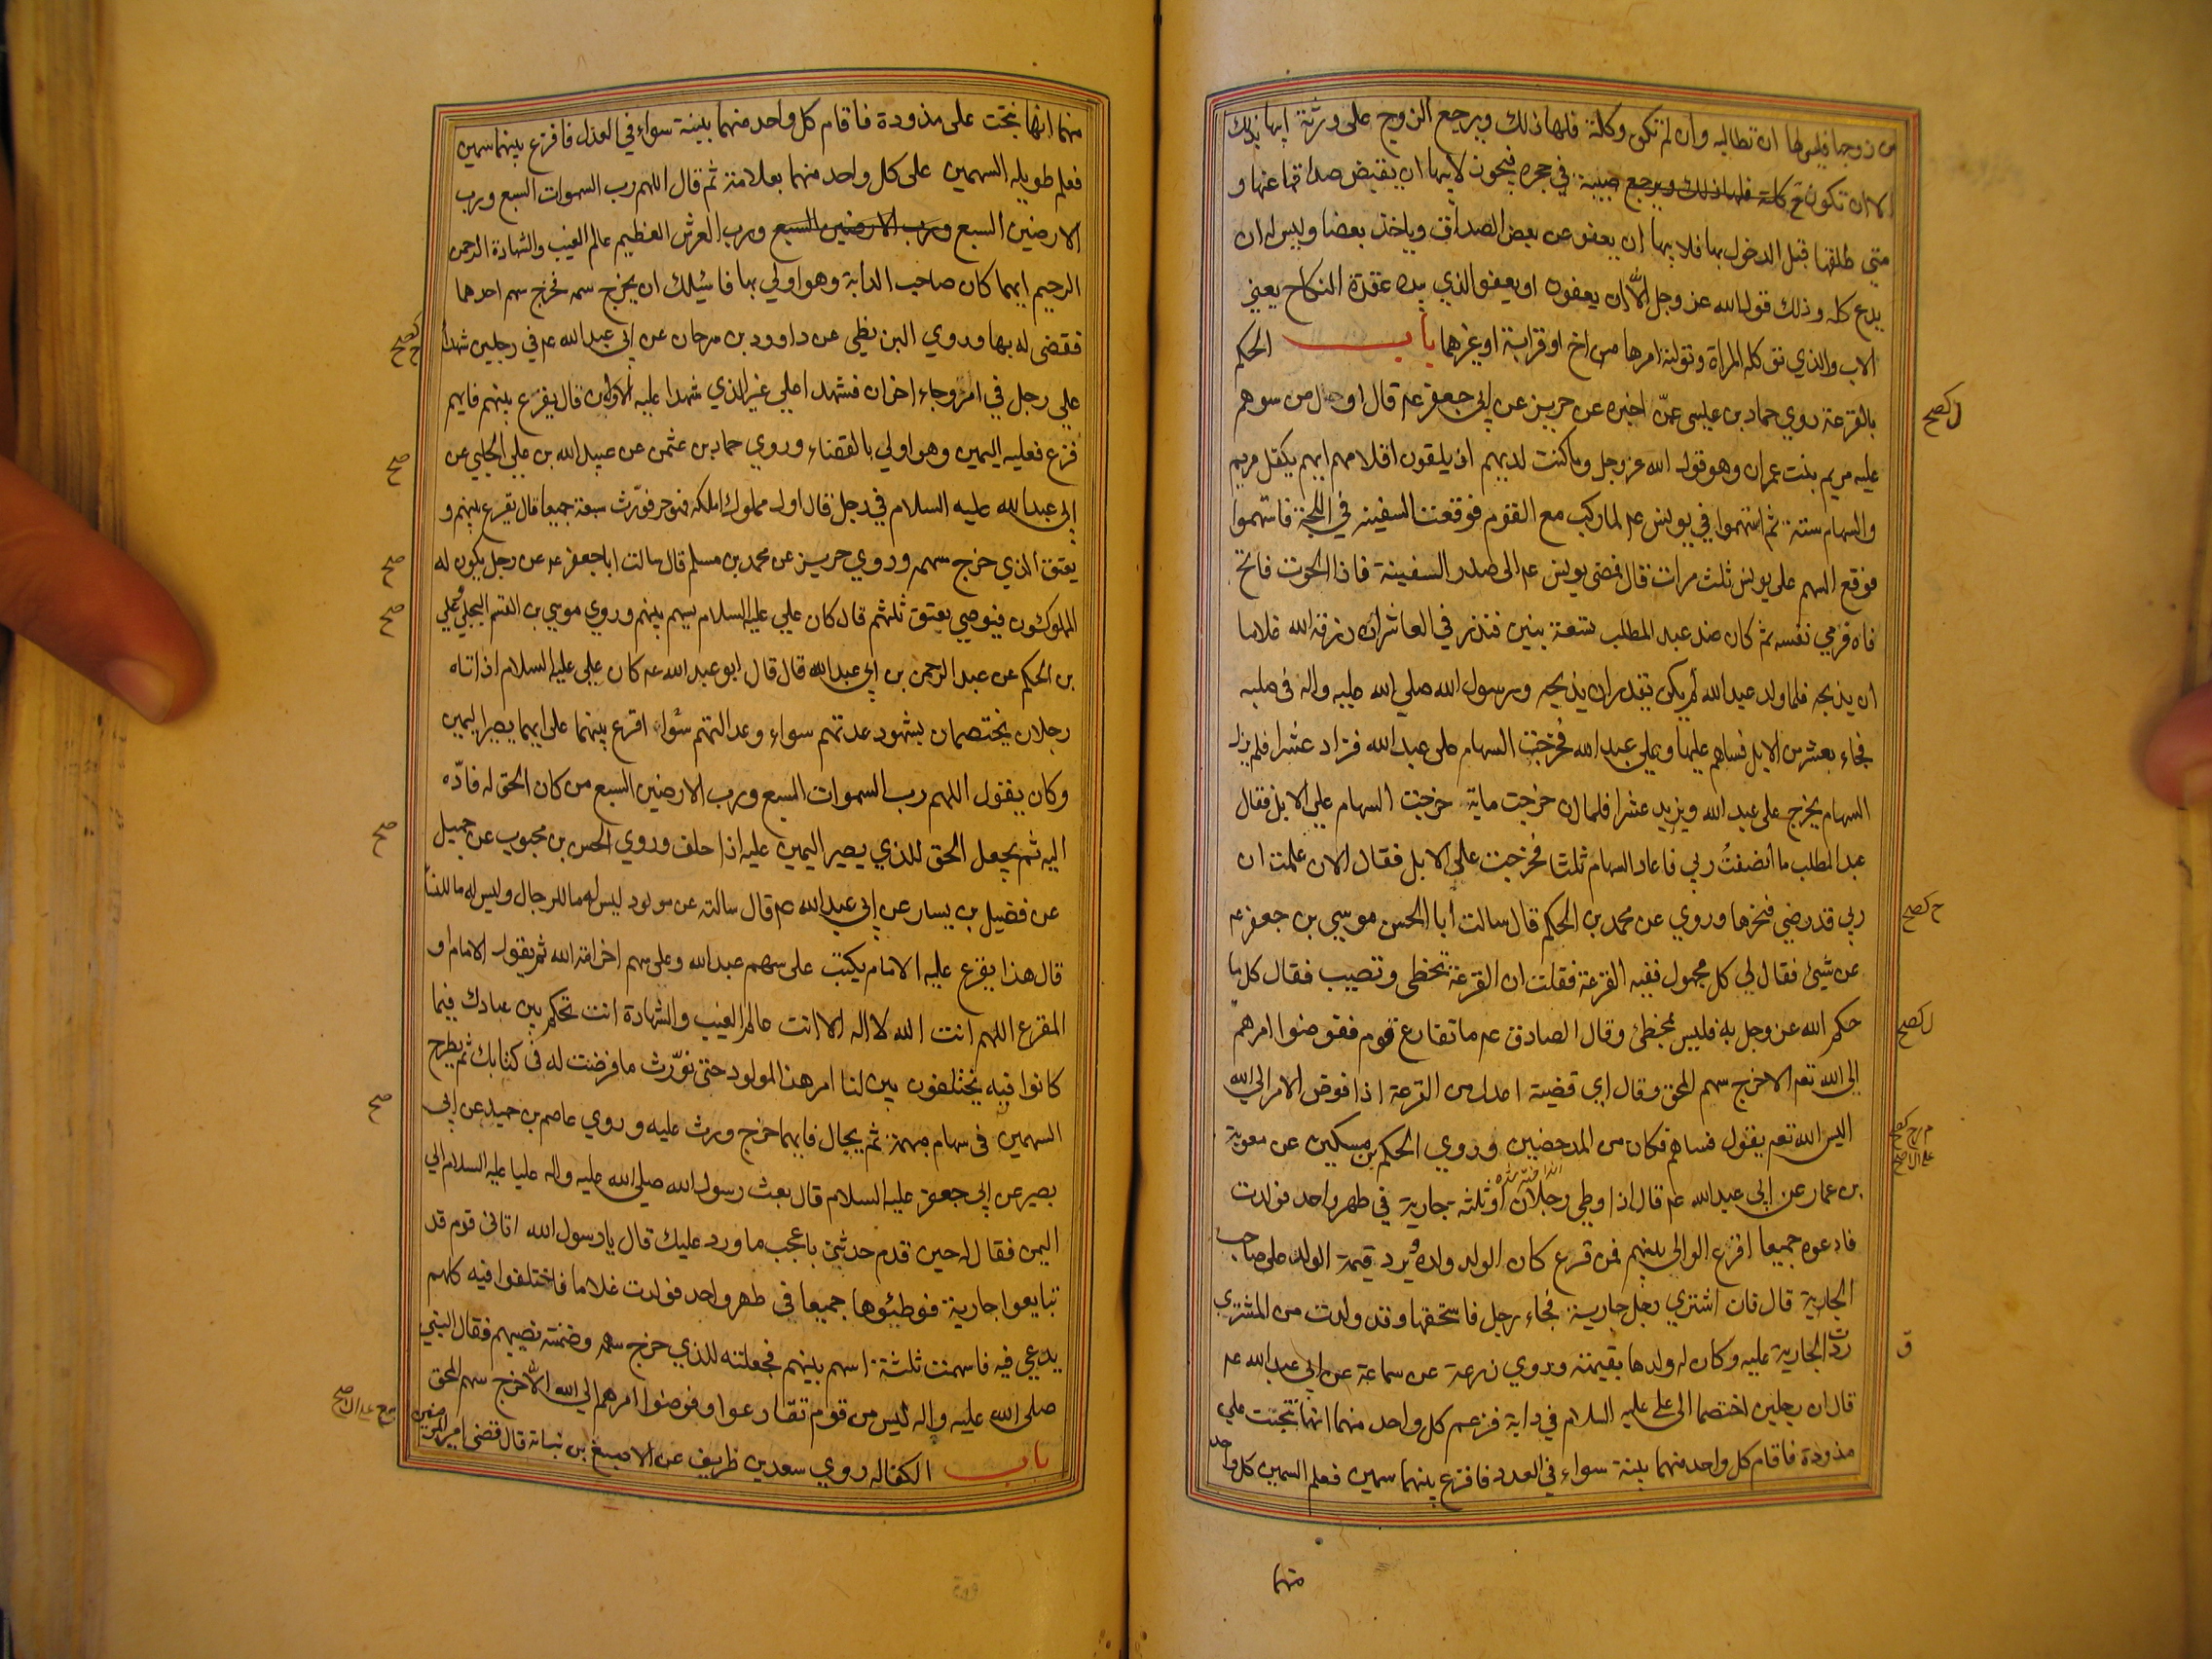 من زوجها فليس لها ان تطالبه وان لم تكن وكلته فلها ذلك ويرجع الزوج على ورثة ابيها بذلك
الا ان تكون ح كلته فلها ذلك ويرجع صبية في حجره فيجوز لابيها ان يقبض صداقها عنها و
متى طلقها قبل الدخول بها فلابيها ان يعفو عن بعض الصداق وياخذ بعضا وليس له ان
يدع كله وذلك قول الله عز وجل الا ان يعفون او يعفو الذي بيده عقدة النكاح يعني
الاب والذي توكله المراة وتوليه امرها من اخ او قرابة او غيرهما باب الحكم
بالقرعة روي حماد بن عيسى عمن اخبره عن حريز عن ابي جعفر ع قال اول من سوهم
عليه مريم بنت عمران وهو قول الله عز وجل وما كنت لديهم اذ يلقون اقلامهم ايهم يكفل مريم
والسهام ستة ثم استهموا في يونس ع لما ركب مع القوم فوقعت السفينة في اللجة فاستهموا
فوقع السهم على يونس ثلث مرات قال فمضى يونس ع الى صدر السفينة فاذا الحوت فاتح
فاه فرمي نفسه ثم كان عند عبد المطلب تسعة بنين فنذر في العاشر ان رزقه الله غلاما
ان يذبحه فلما ولد عبد الله لم يكن يقدر ان يذبحه ورسول الله صلي الله عليه واله في صلبه
فجاء بعشر من الابل فساهم عليها وعلي عبد الله فخرجت السهام على عبد الله فزاد عشرا فلم يزل
السهام يخرج على عبد الله ويزيد عشرا فلما ان خرجت ماية خرجت السهام علي الابل فقال
عبد المطلب ما انصفت ربي فاعاد السهام ثلثا فخرجت علي الابل فقال الان علمت ان
ربي قد رضي فنحرها وروي عن محمد بن الحكم قال سالت ابا الحسن موسي بن جعفر ع
عن شيئ فقال لي كل مجهول ففيه القرعة فقلت ان القرعة تخطى وتصيب فقال كل ما
حكم الله عز وجل به فليس بمخطئ وقال الصادق ع ما تقارع قوم ففوضوا امرهم
الى الله تعم الا خرج سهم المحق وقال اي قضية اعدل من القرعة اذا فوض الامر الي الله
اليس الله تعم يقول فساهم فكان من المدحضين وروي الحكم بن مسكين عن معوية
بن عمار عن ابي عبد الله ع قال اذا وطي رجلان او ثلثة جارية في طهر واحد فولدت
فادعوه جميعا اقرع الوالي بينهم فمن قرع كان الولد ولده ويرد قيمة الولد على صاحب
الجارية قال فان اشتري رجل جارية فجاء رجل فاستحقها وقد ولدت من المشتري
رد الجارية عليه وكان له ولدها بقيمته وروي زرعة عن سماعة عن ابي عبد الله ع
قال ان رجلين اختصما الى علي عليه السلام في دابة فزعم كل واحد منهما انها نتجت علي
مذودة فاقام كل واحد منهما بينة سواء في العدد فاقرع بينهما سهمين فعلم السهمين كل واحد
منهما
منهما انها نتجت على مذودة فاقام كل واحد منهما بينة سواء في العدل فاقرع بينهما سهمين
فعلم طويله السهمين على كل واحد منهما بعلامة ثم قال اللهم رب السموات السبع ورب
الارضين السبع ورب الارضين السبع ورب العرش العظيم عالم الغيب والشهادة الرحمن
الرحيم ايهما كان صاحب الدابة وهو اولي بها فاسئلك ان يخرج سهمه فخرج سهم احدهما
فقضى له بها وروي البزنطي عن داوود بن سرحان عن ابي عبد الله ع في رجلين شهدا
علي رجل في امر وجاء اخران فشهدا علي غير الذي شهدا عليه الاولان قال يقرع بينهم فايهم
قرع فعليه اليمين وهو اولي بالقضاء وروي حماد بن عثمن عن عبيد الله بن علي الحلبي عن
ابي عبد الله عليه السلام في رجل قال اول مملوك املكه فهو حر فورث سبعة جميعا قال يقرع بينهم و
يعتق الذي خرج سهمه وروي حريز عن محمد بن مسلم قال سالت ابا جعفر ع عن رجل يكون له
المملوكون فيوصي بعتق ثلثهم قال كان علي عليه السلام يسهم بينهم وروي موسي بن القسم البجلي وعلي
بن الحكم عن عبد الرحمن بن ابي عبد الله قال قال ابو عبد الله ع كان علي عليه السلام اذا اتاه
رجلان يختصمان بشهود عدتهم سواء وعدالتهم سواء اقرع بينهما على ايهما يصير اليمين
وكان يقول اللهم رب السموات السبع ورب الارضين السبع من كان الحق له فاده
اليه ثم يجعل الحق للذي يصير اليمين عليه اذا حلف وروي الحسن بن محبوب عن جميل
عن فضيل بن يسار عن ابي عبد الله ع قال سالته عن مولود ليس له ما للرجال وليس له ما للنسا
قال هذا يقرع عليه الامام يكتب على سهم عبد الله وعلى سهم اخر امة الله ثم يقول الامام او
المقرع اللهم انت الله لا اله الا انت عالم الغيب والشهادة انت تحكم بين عبادك فيما
كانوا فيه يختلفون بين لنا امر هذا المولود حتى نورث ما فرضت له في كتابك ثم يطرح
السهمين في سهام مبهمة ثم يجال فايهما خرج ورث عليه وروي عاصم بن حميد عن ابي
بصير عن ابي جعفر عليه السلام قال بعث رسول الله صلي الله عليه واله عليا عليه السلام الي
اليمن فقال له حين قدم حدثني باعجب ما ورد عليك قال يا رسول الله اتاني قوم قد
تبايعوا جارية فوطئوها جميعا في طهر واحد فولدت غلاما فاختلفوا فيه كلهم
يدعي فيه فاسهمت ثلثة اسهم بينهم فجعلته للذي خرج سهمه وضمنته نصيبهم فقال النبي
صلى الله عليه واله ليس من قوم تقارعوا وفوضوا امرهم الي الله الا خرج سهم المحق
باب الكفالة روي سعد بن ظريف عن الاصبغ بن نباتة قال قضى امير المؤمنين